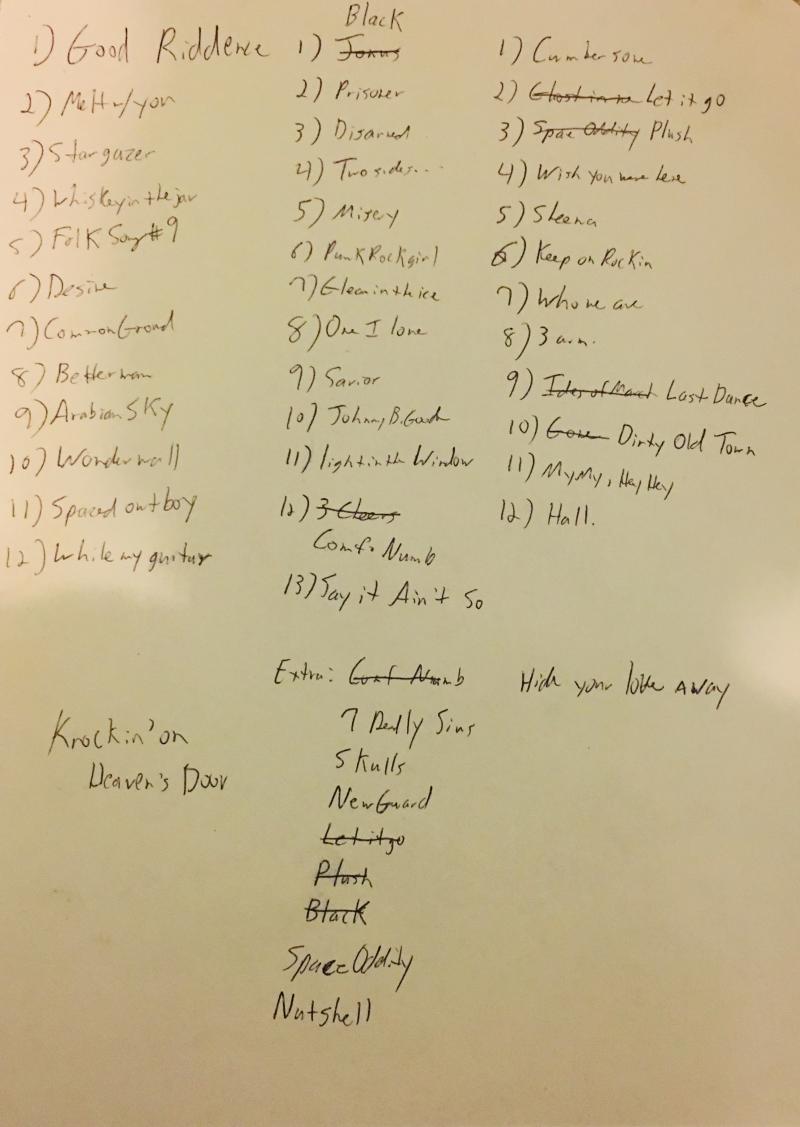 1) Good Riddence
2) Melt w/ you
3) Stargazer
4) Whiskey in the jar
5) Folk Song #9
6) Desire
7) Common Ground
8) Betterman
9) Arabian SKY
10) Wonderwall
11) Spaced out boy
12) While my guitar
Knockin' on
Heaven's Door
Black
1) Jonus
2) Prisoner
3) Disarmed
4) Two sides...
5) Misery
6) Punk Rock girl
7) Gleam in the ice
8) One I love
9) Savior
10) Johnny B. Goode
11) light in the Window
12) 3 Cheers
Comf. Numb
13) Say it Ain't So
Extra: Comf Numb
7 Deadly Sins
Skulls
New Guard
Let it go
Plush
Black
Space Oddity
Nutshell
1) Cumbersome
2) Ghost in the Let it go
3) Space Oddity Plush
4) Wish you were here
5) Sheena
6) Keep on Rockin
7) Who we are
8) 3 a.m.
9) Ides of March Last Dance
10) Gone Dirty Old Town
11) My My, Hey Hey
12) Hall.
Hide your love away